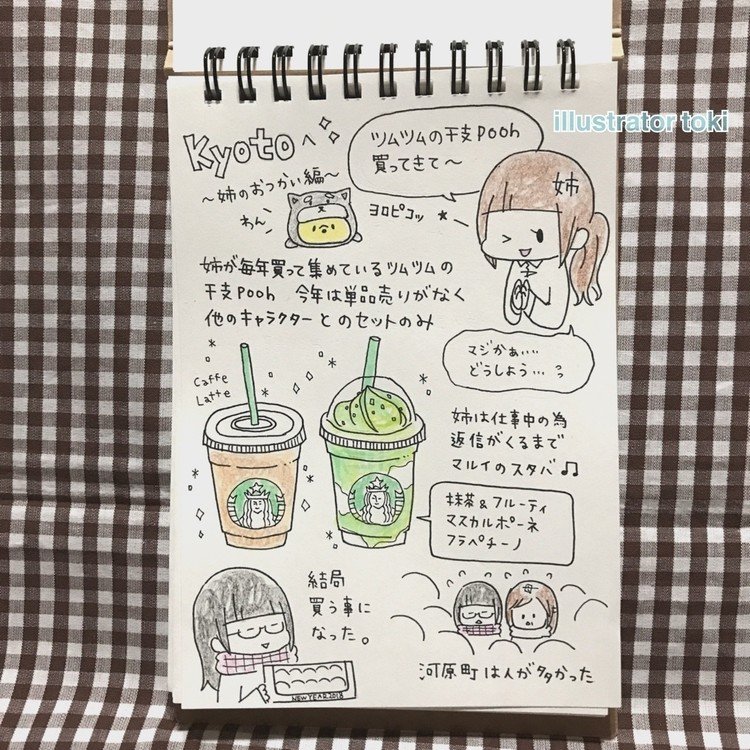 illustrator toki
Kyotoへ
〜姉のおつかい編〜
わん
ツムツムの干支pooh
買ってきて〜
姉
ヨロピコッ
姉が毎年買って集めているツムツムの
干支pooh 今年は単品売りがなく
他のキャラクターとのセットのみ
マジかぁ....
どうしよう...
Caffe
Latte
姉は仕事中の為
返信がくるまで
マルイのスタバ♫
抹茶&フルーティ
マスカルポーネ
フラペチーノ
結局
買う事に
なった。
NEW YEAR 2018
母
河原町は人が多かった